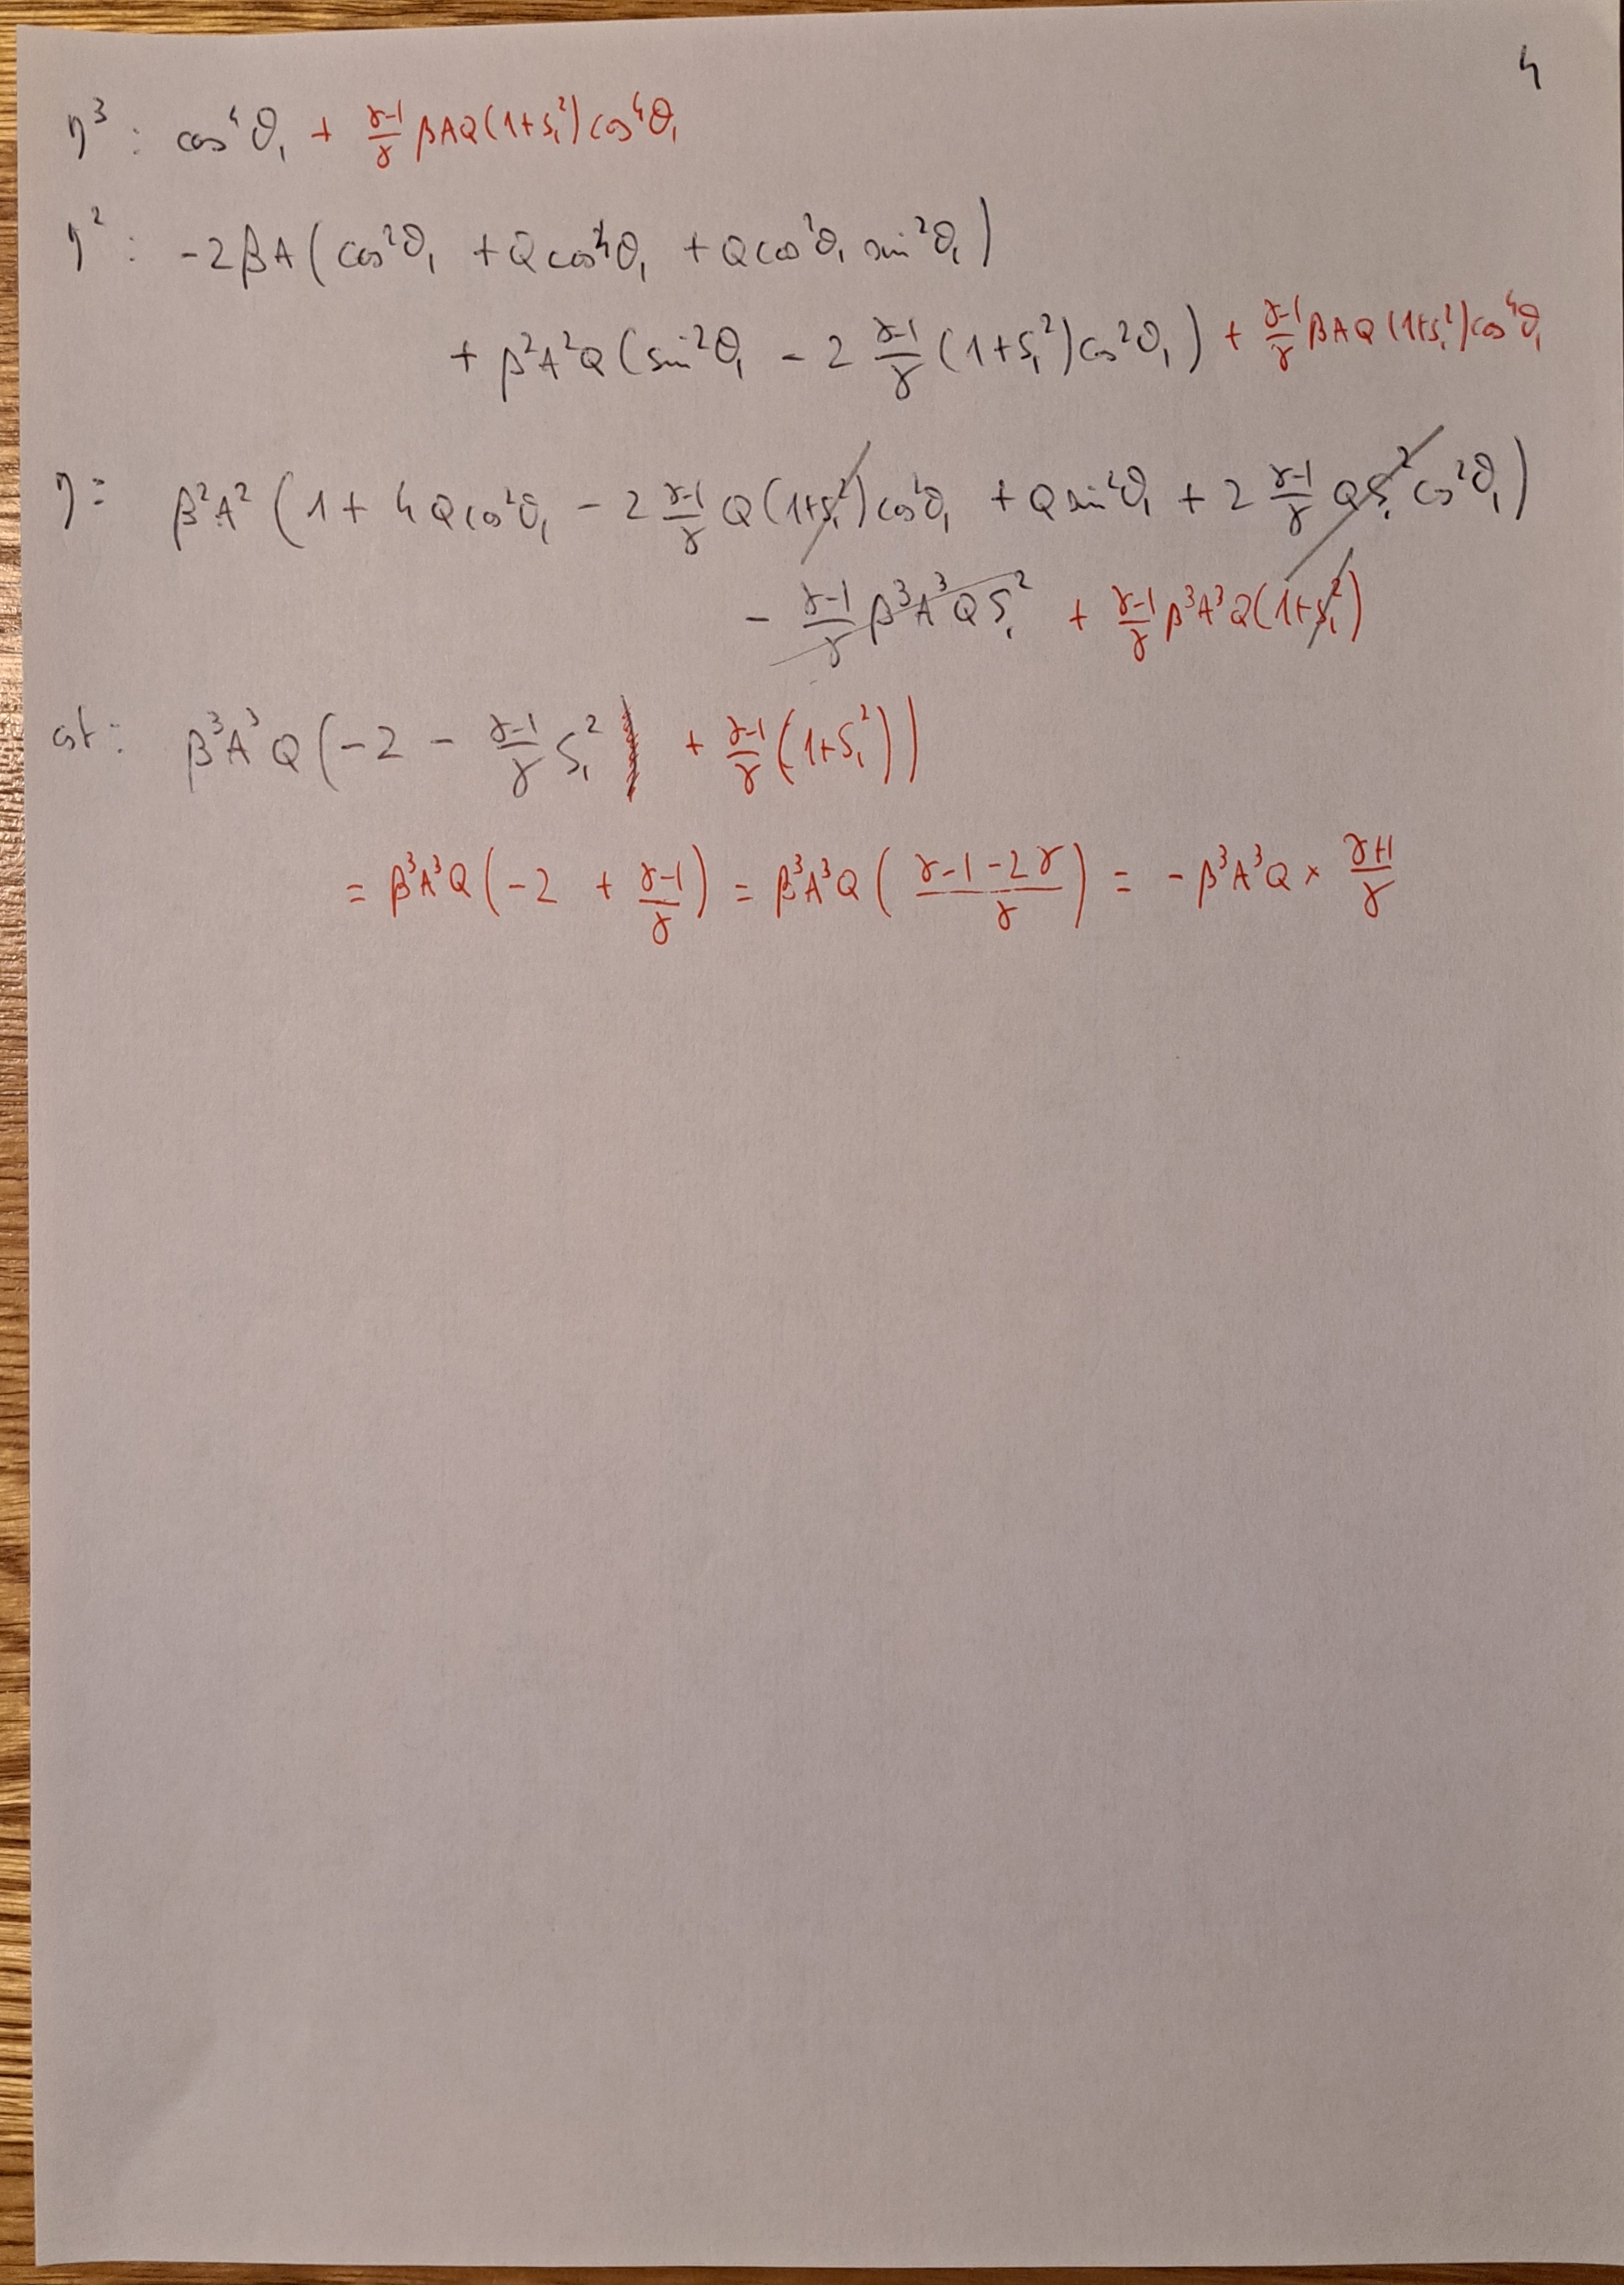 4
η³ : cos⁴θ₁ + (γ-1)/γ βAQ(1+S₁²)cos⁴θ₁
η² : -2βA(cos²θ₁ + Qcos⁴θ₁ + Qcos²θ₁ sin²θ₁)
+ β²A²Q(sin²θ₁ - 2 (γ-1)/γ (1+S₁²)cos²θ₁) + (γ-1)/γ βAQ(1+S₁²)cos⁴θ₁
η : β²A²(1 + 4Qcos²θ₁ - 2 (γ-1)/γ Q(1+S₁²)cos²θ₁ + Qsin²θ₁ + 2 (γ-1)/γ QS₁²cos²θ₁)
- (γ-1)/γ β³A³QS₁² + (γ-1)/γ β³A³Q(1+S₁²)
cst : β³A³Q(-2 - (γ-1)/γ S₁² + (γ-1)/γ (1+S₁²))
= β³A³Q(-2 + (γ-1)/γ) = β³A³Q((γ-1-2γ)/γ) = -β³A³Q × (γ+1)/γ